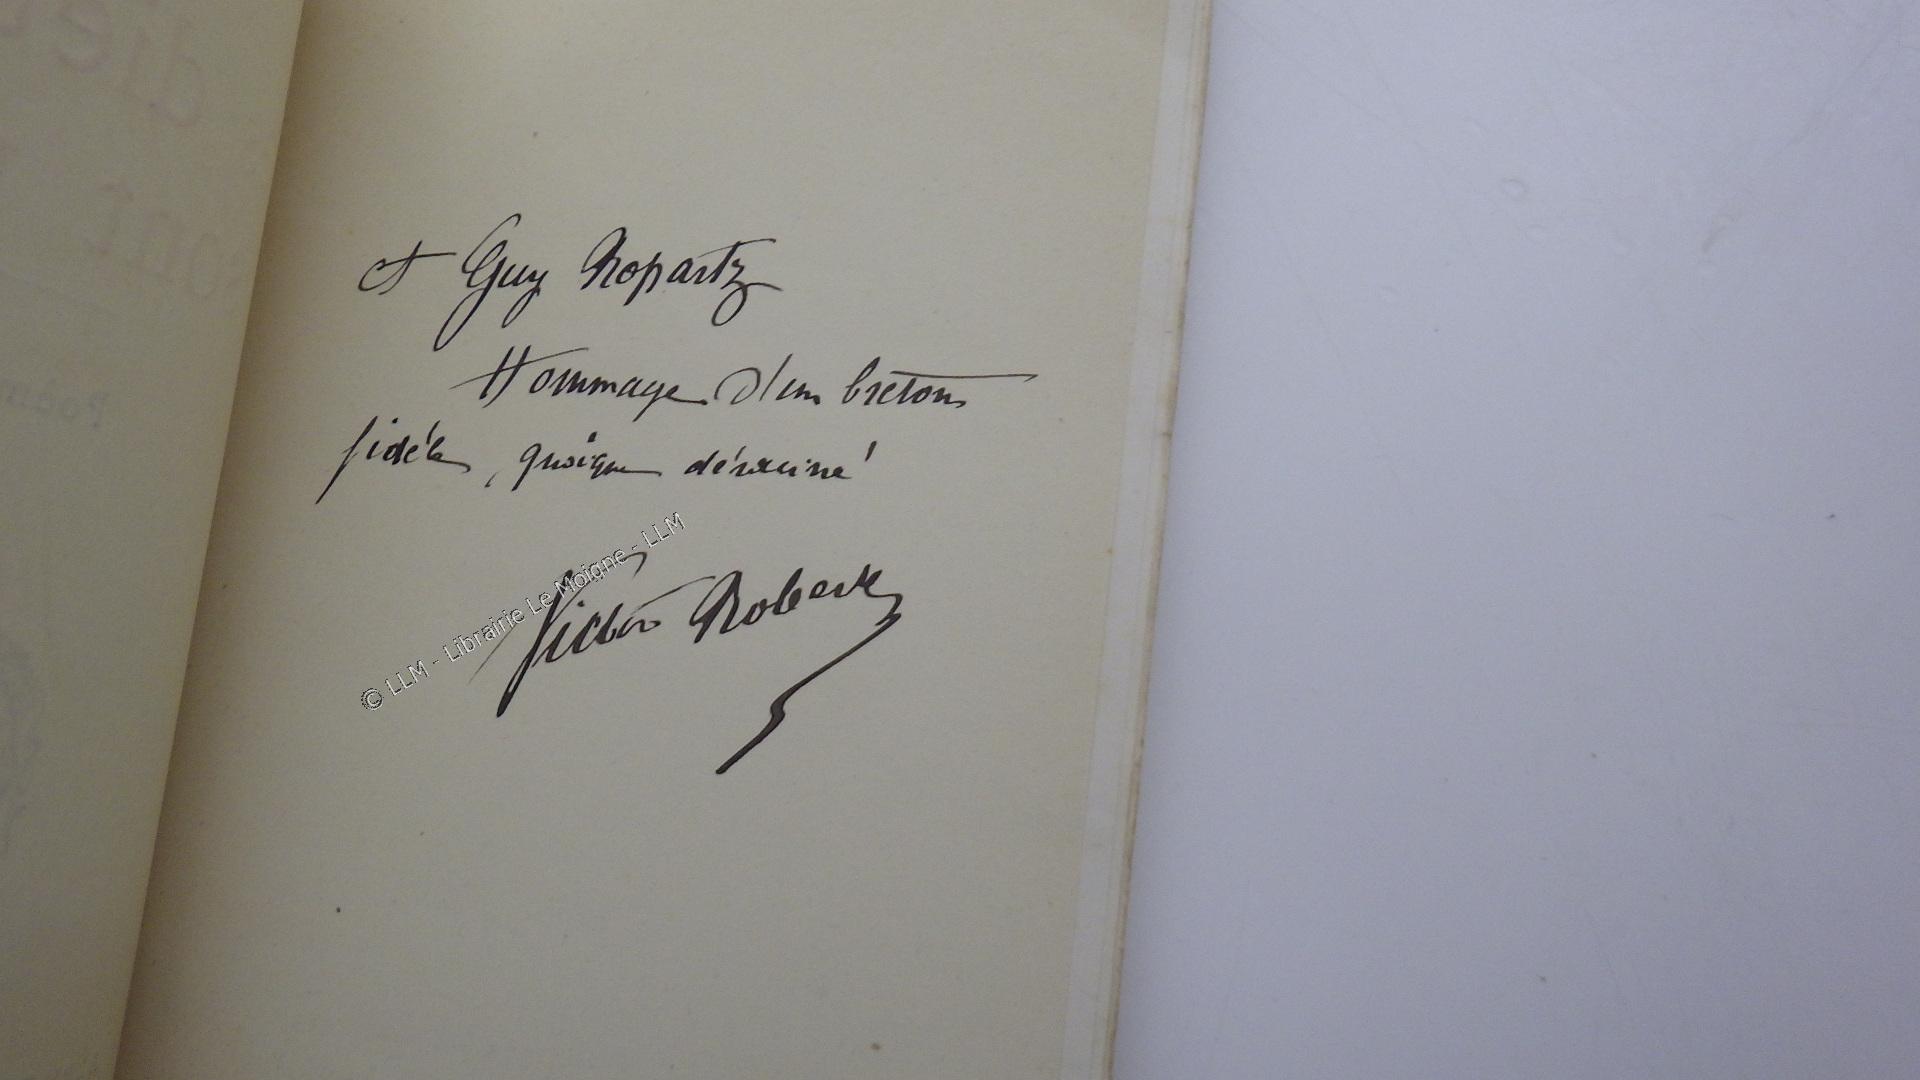 A Guy Ropartz
Hommage d'un breton
fidèle, quoique déraciné
Victor Robert
© LLM - Librairie Le Moigne - LLM